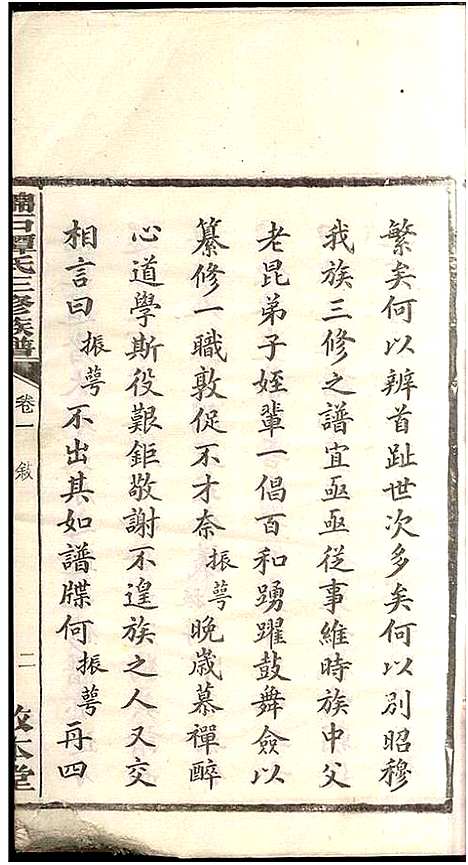 繁矣何以辨首趾世次多矣何以别昭穆
我族三修之譜宜亟亟从事維時族中父
老昆弟子姪輩一倡百和踴躍鼓舞僉以
纂修一職敦促不才奈振萼晚歲慕禪醉
心道學斯役艱鉅敬謝不遑族之人又交
相言曰振萼不出其如譜牒何振萼再四
譚氏三修族譜
卷一
敘
二
敦本堂